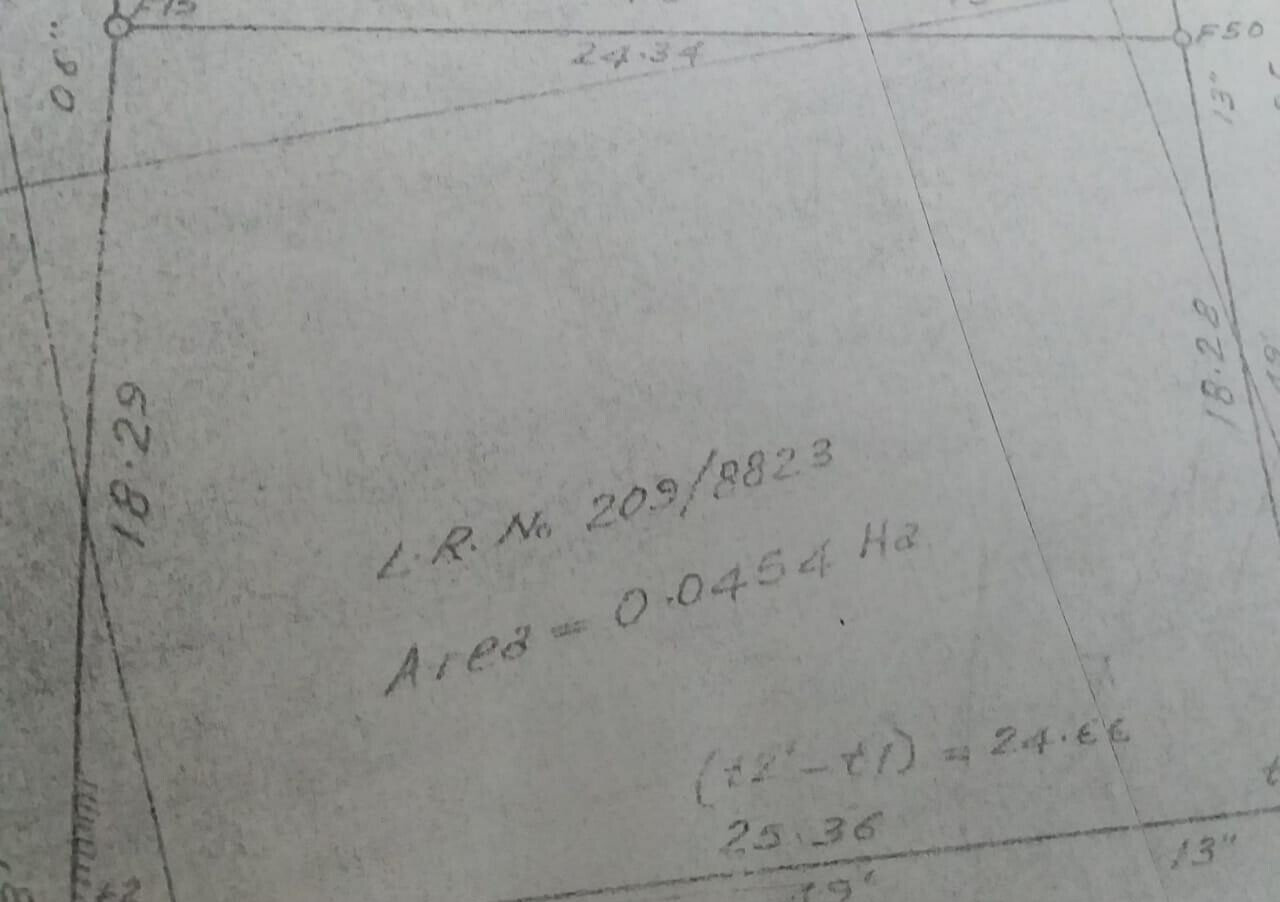 F15
24.34
F50
06"
13"
18.29
18.28
L.R. No 209/8823
Area = 0.0454 Ha
(t2'-t1) = 24.66
25.36
19'
13"
t2